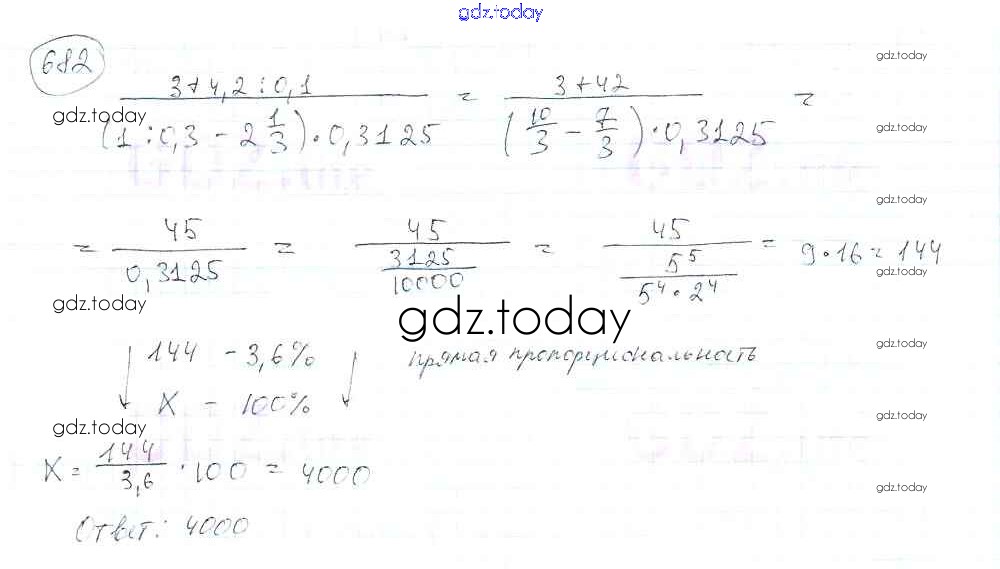 gdz.today
682
gdz.today
(3+4,2:0,1)/((1:0,3 - 2 1/3)·0,3125) = (3+42)/((10/3 - 7/3)·0,3125) =
gdz.today
gdz.today
gdz.today
= 45/0,3125 = 45/(3125/10000) = 45/(5⁵/(5⁴·2⁴)) = 9·16 = 144
gdz.today
gdz.today
gdz.today
gdz.today
↓ 144 - 3,6% ↓ прямая пропорциональность
X - 100%
gdz.today
gdz.today
X = 144/3,6 ·100 = 4000
gdz.today
Ответ: 4000
gdz.today